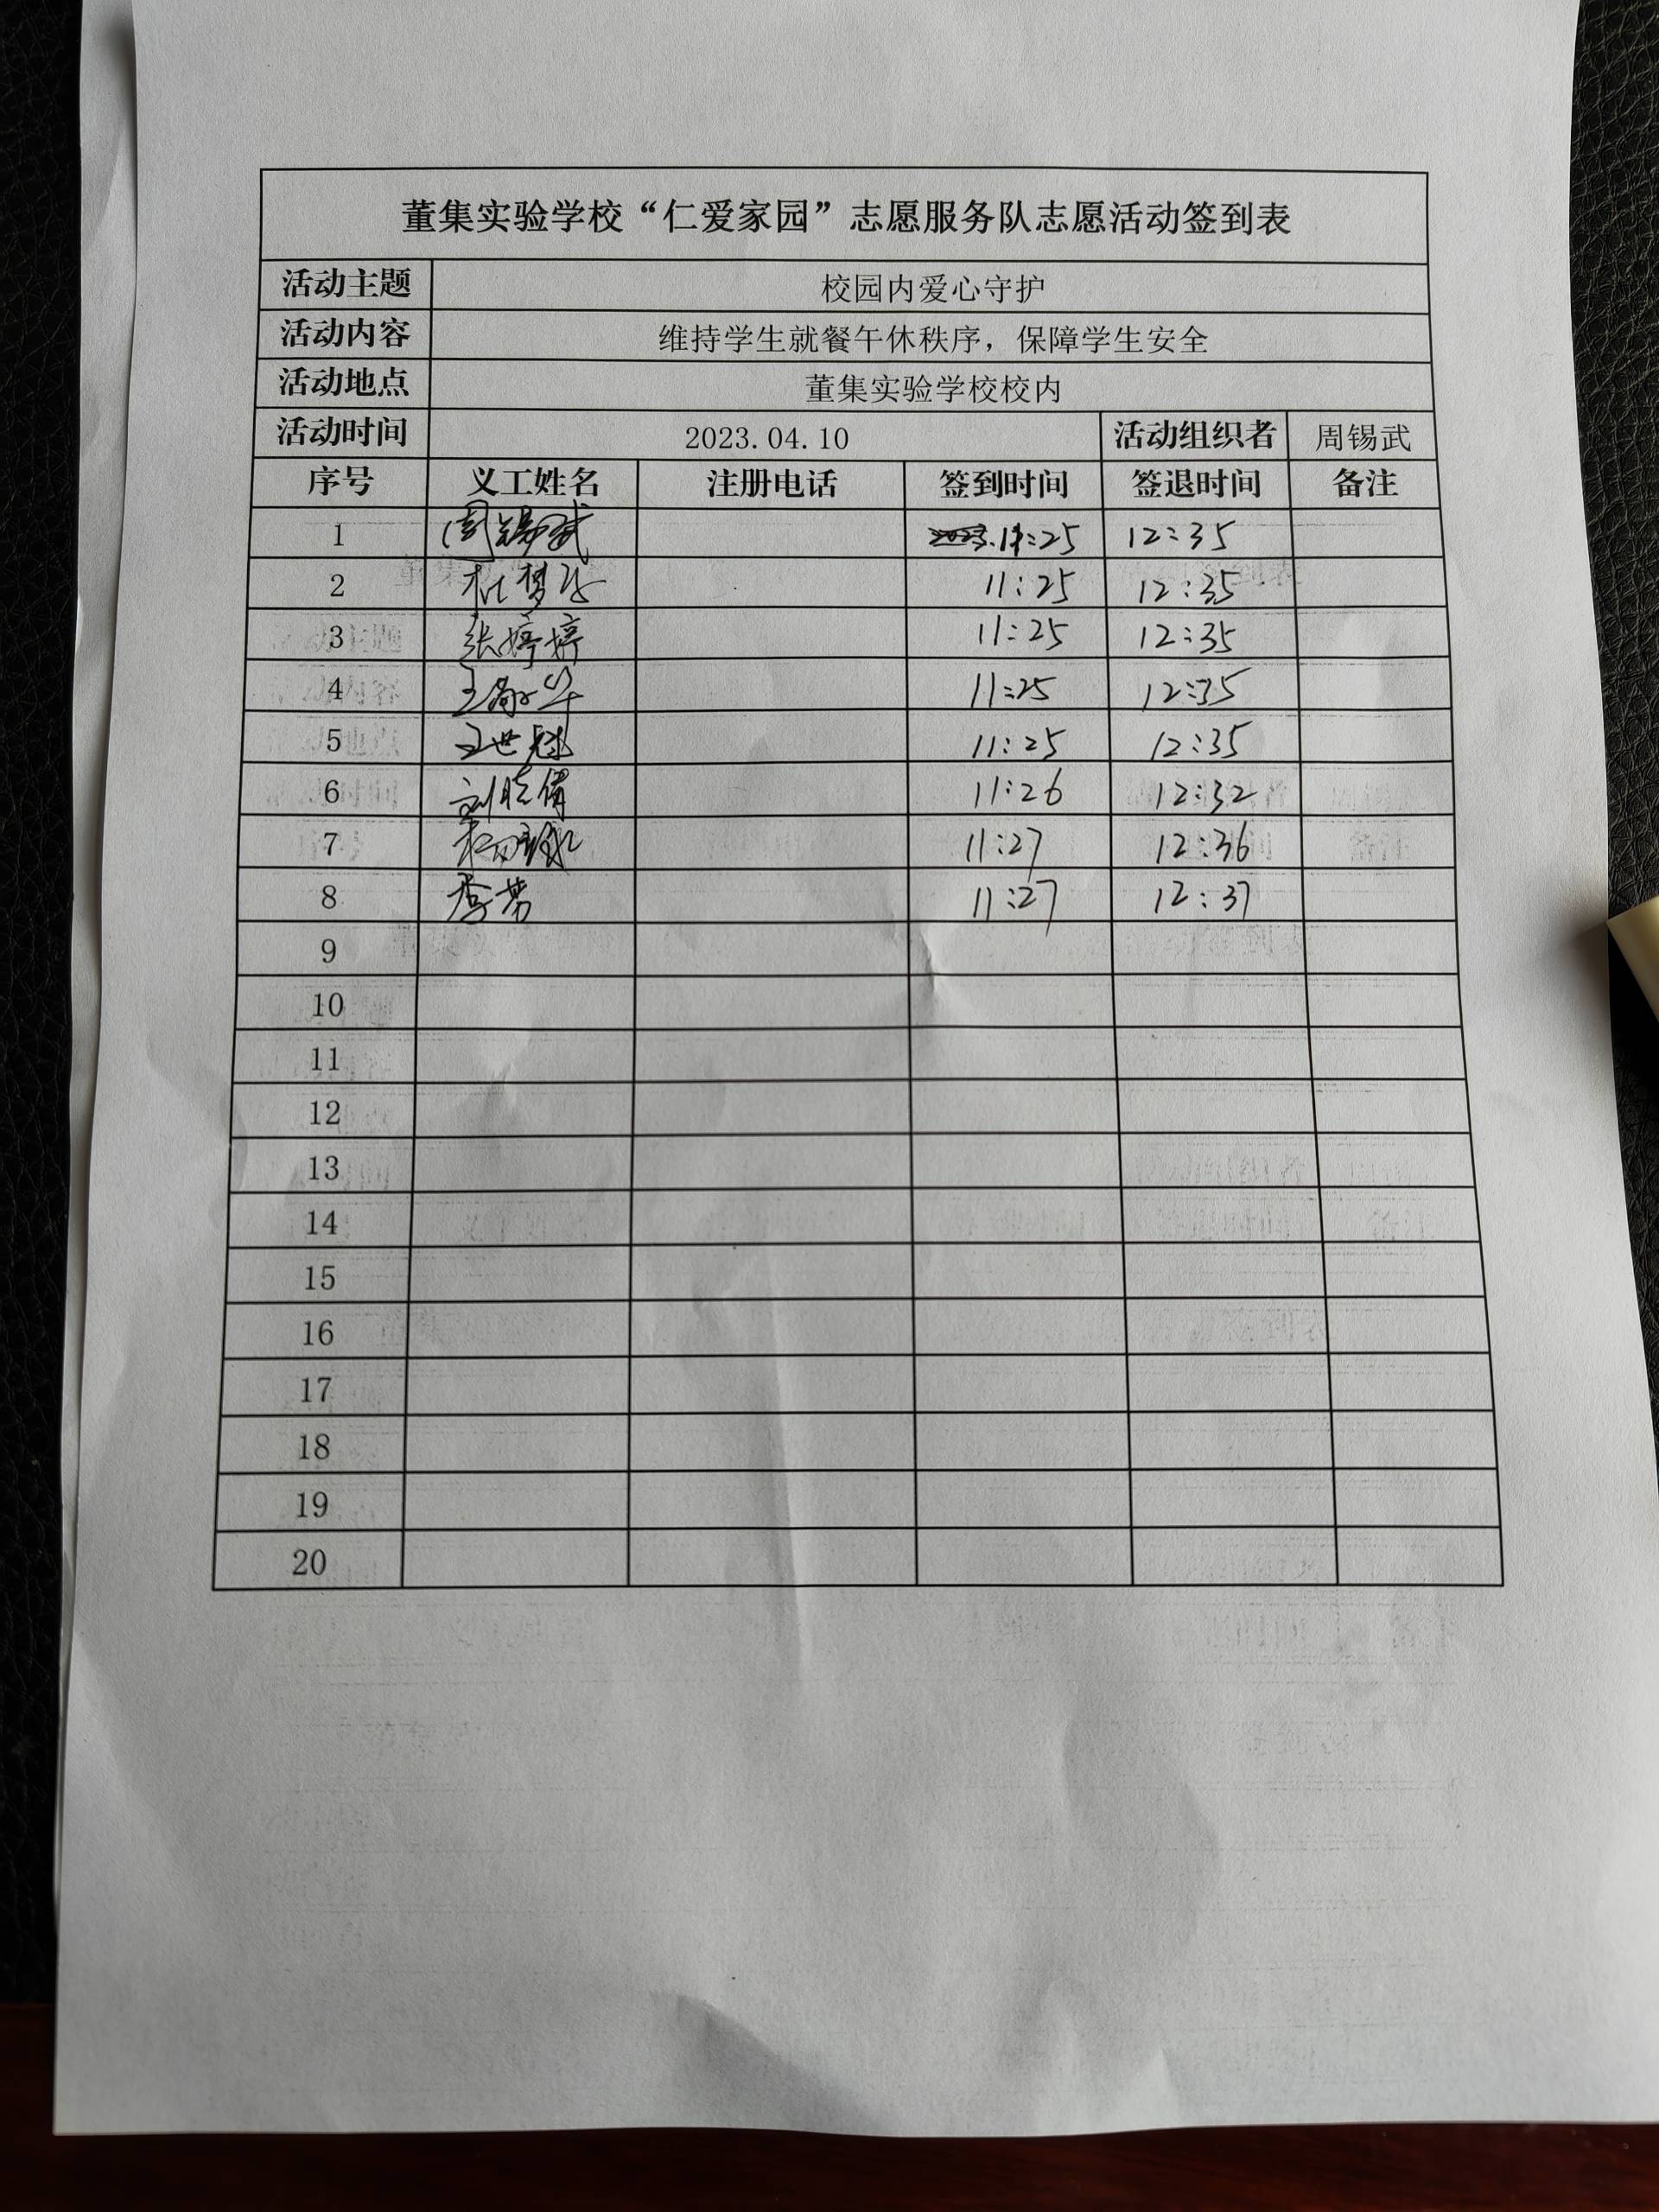 董集实验学校“仁爱家园”志愿服务队志愿活动签到表
活动主题 校园内爱心守护
活动内容 维持学生就餐午休秩序，保障学生安全
活动地点 董集实验学校校内
活动时间 2023.04.10 活动组织者 周锡武
序号 义工姓名 注册电话 签到时间 签退时间 备注
1 周锡武 11:25 12:35
2 杜梦 11:25 12:35
3 张婷婷 11:25 12:35
4 王 华 11:25 12:35
5 王世 11:25 12:35
6 刘晓倩 11:26 12:32
7 11:27 12:36
8 李芳 11:27 12:37
9
10
11
12
13
14
15
16
17
18
19
20